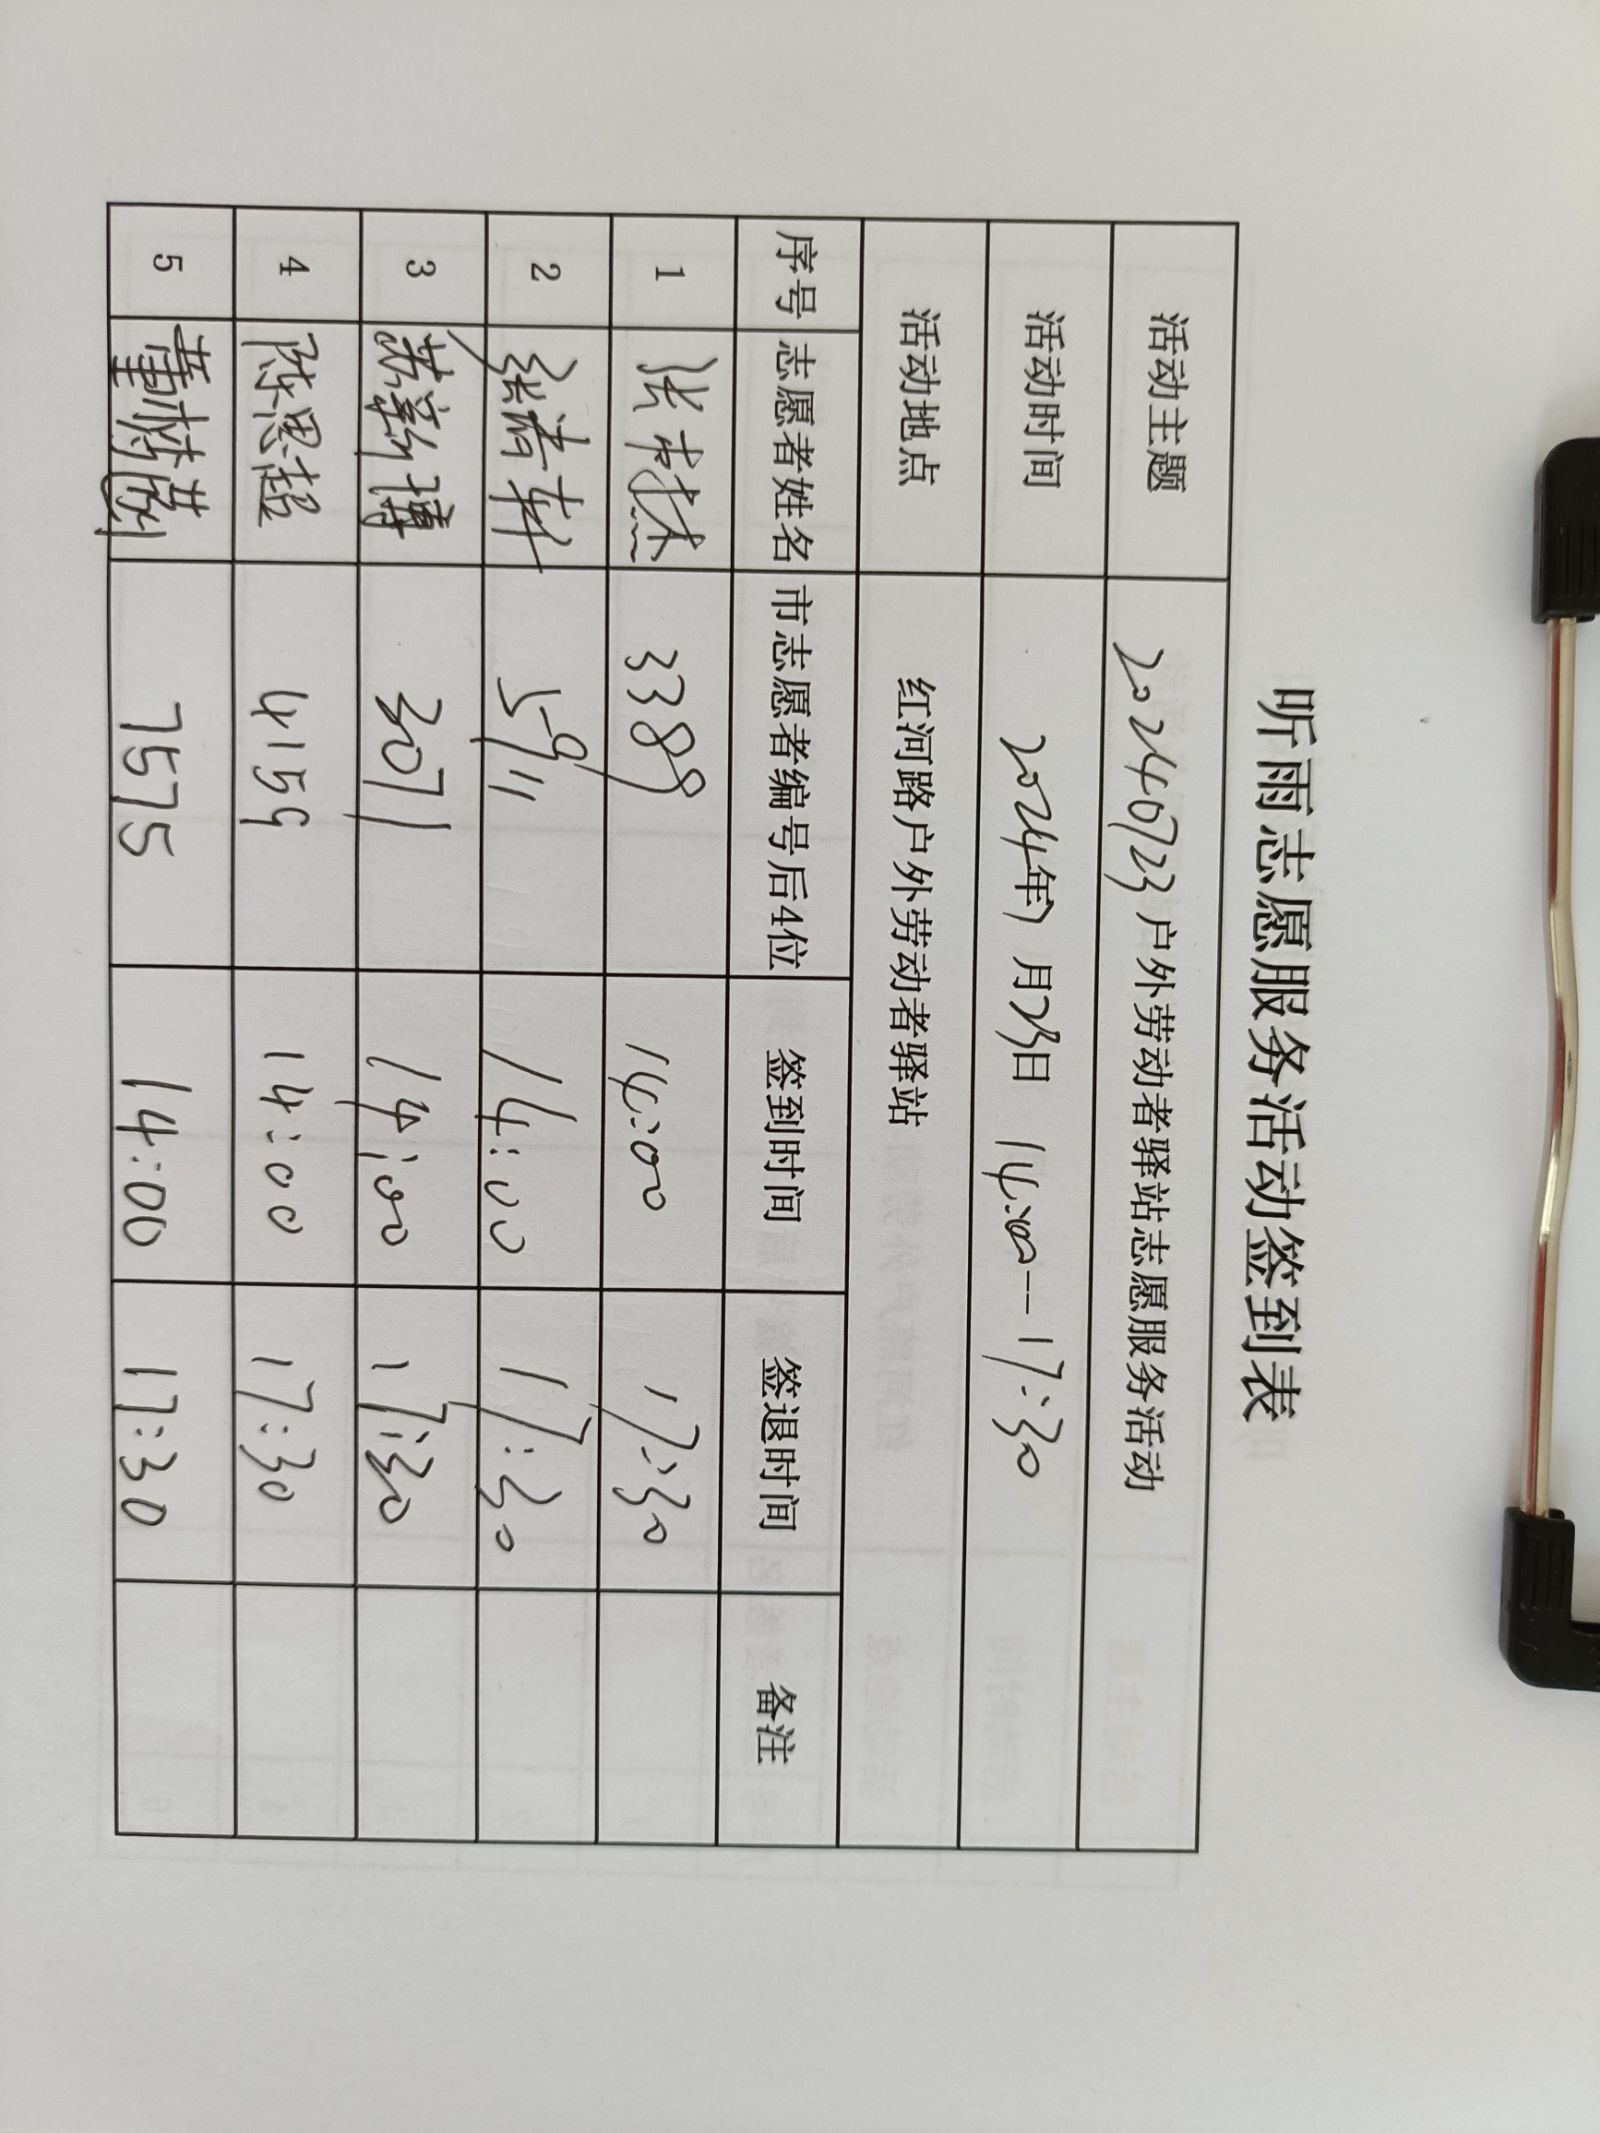 听雨志愿服务活动签到表
活动主题 20240723户外劳动者驿站志愿服务活动
活动时间 2024年7月23日 14:00--17:30
活动地点 红河路户外劳动者驿站
序号 志愿者姓名 市志愿者编号后4位 签到时间 签退时间 备注
1 张杰 3389 14:00 17:30
2 张清轩 5911 14:00 17:30
3 苏新博 3071 14:00 17:30
4 陈思超 4159 14:00 17:30
5 董树 7575 14:00 17:30